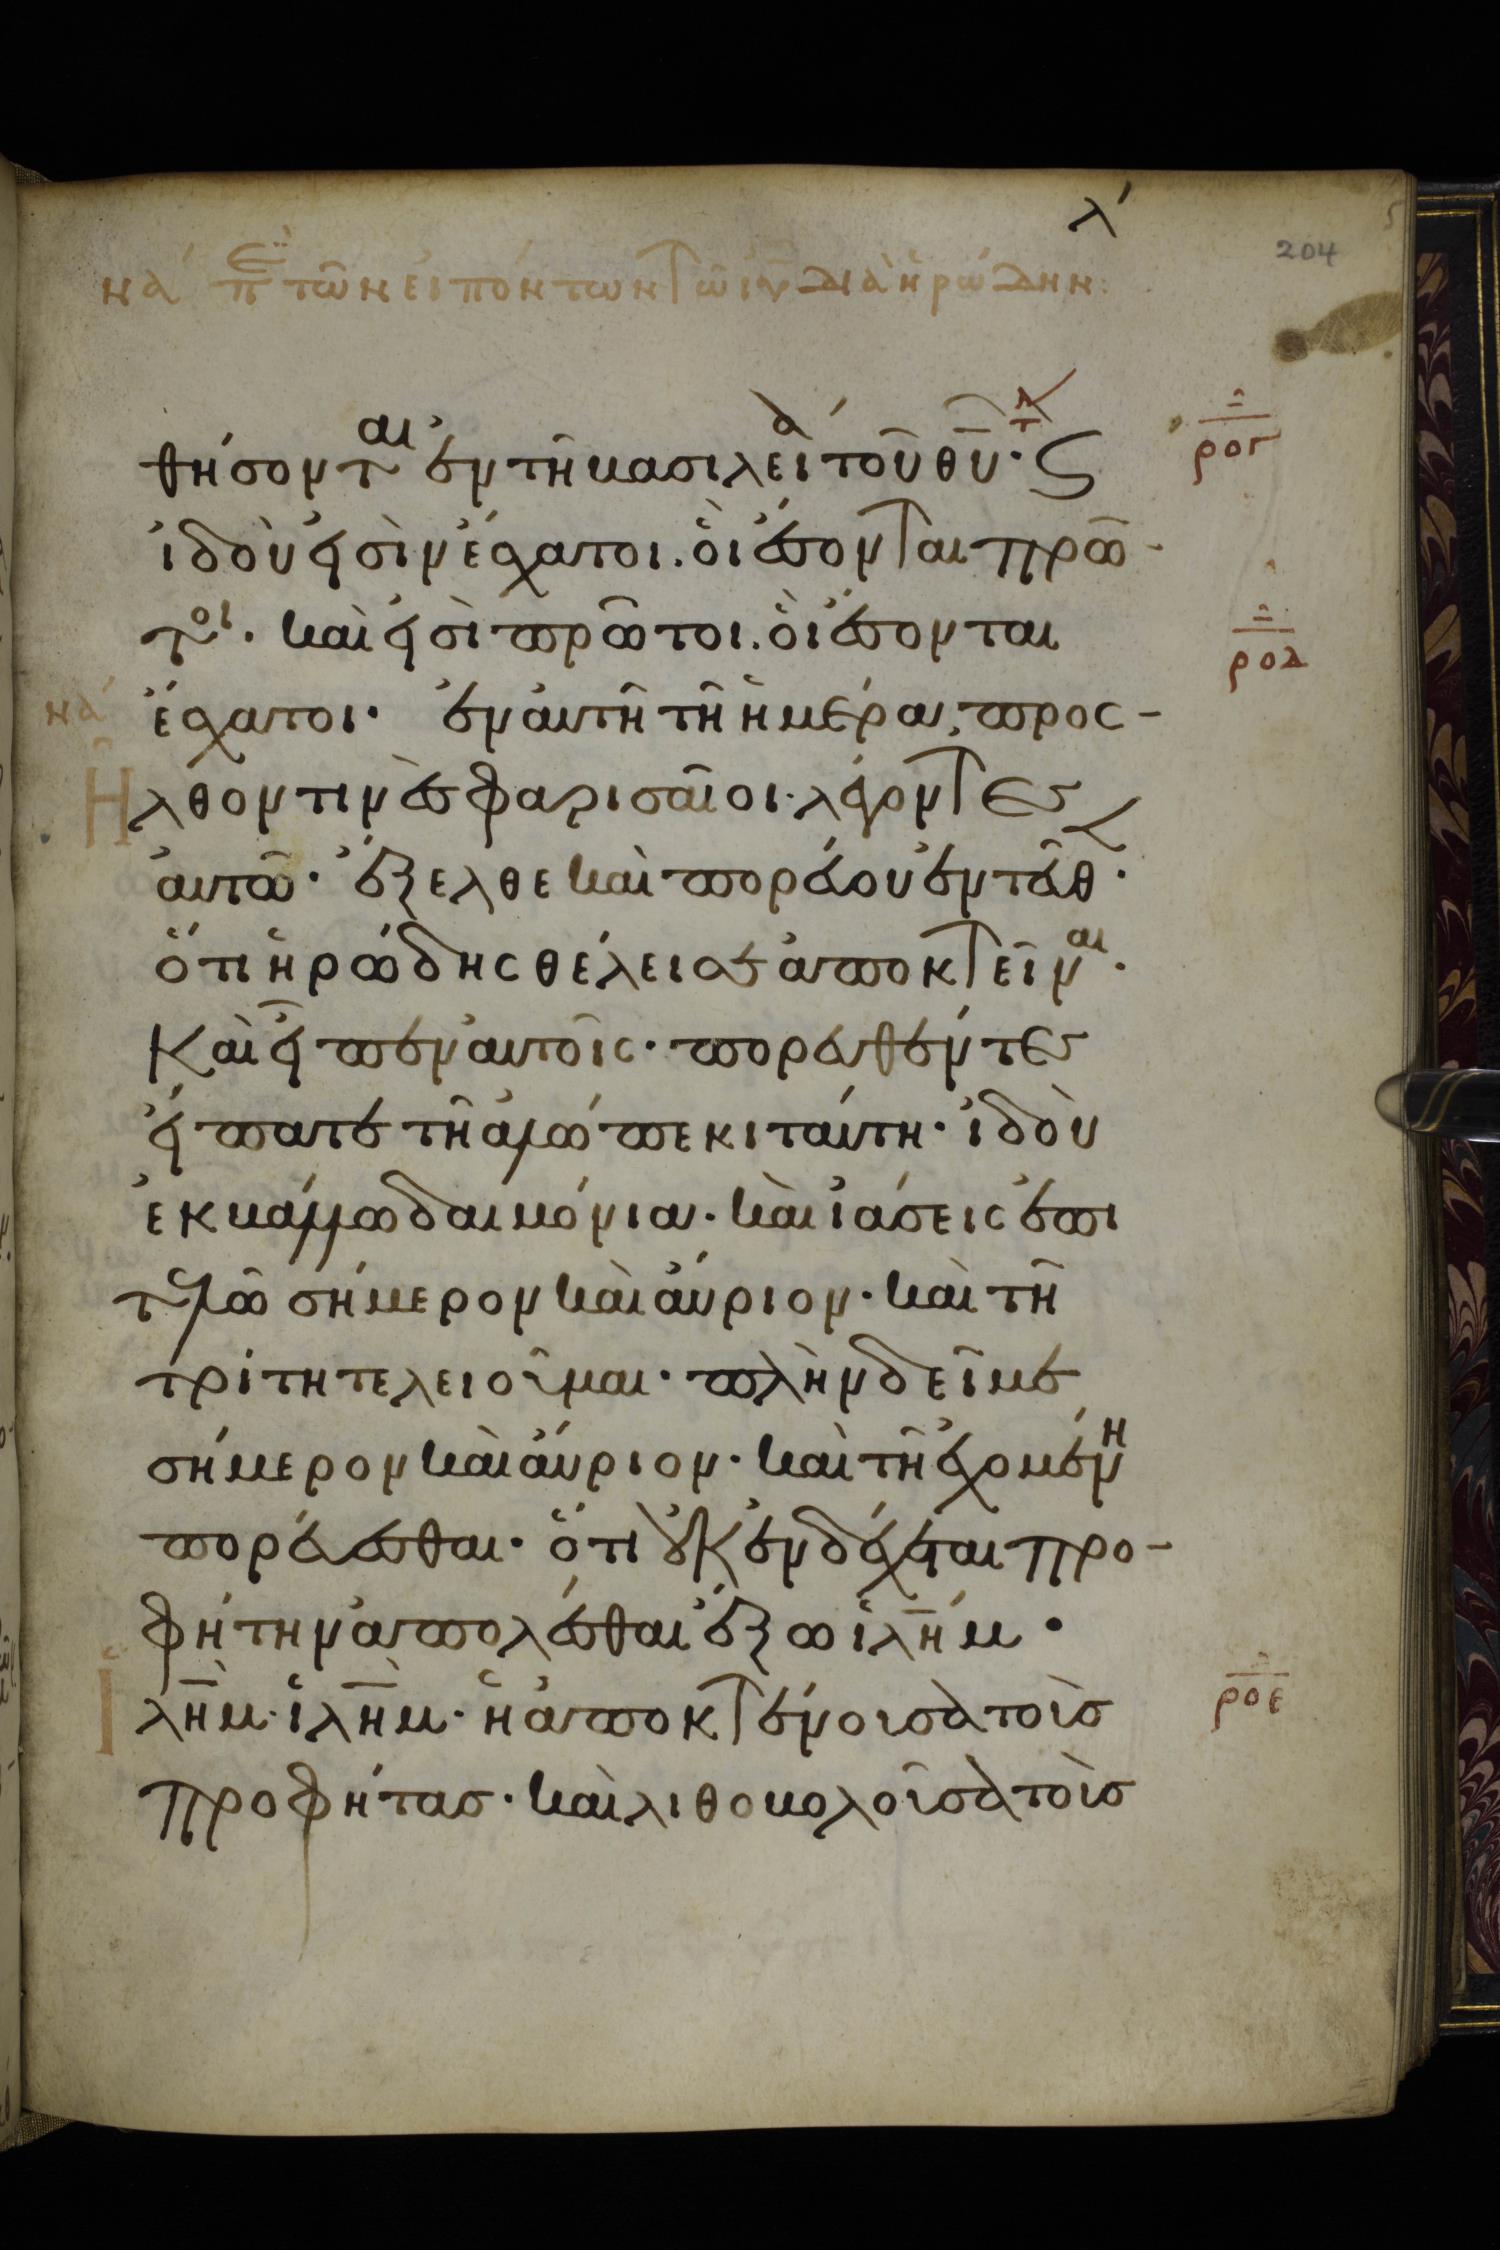 λ´
204
να´ πε τῶν εἰπόντων τῶ ιυ διὰ ἡρώδην:
θήσονται ἐν τῆ βασιλεία τοῦ θυ· ϛ
ρογ
ἰδοὺ εἰσὶν ἔσχατοι. οἱ ἔσονται πρῶ-
τοι· καὶ εἰσὶ πρῶτοι. οἱ ἔσονται
ροδ
να´
ἔσχατοι· ἐν αυτῆ τῆ ἡμέρα, προσ-
ῆλθον τινὲσ φαρισαῖοι· λέγοντες
αὐτῶ· ἔξελθε καὶ πορεύου ἐντεῦθ·
ὅτι ἡρώδης θέλει σε ἀποκτεῖναι·
Καὶ εἶπεν αὐτοῖς· πορευθέντες
εἴπατε τῆ ἀλώπεκι ταύτη· ἰδοὺ
ἐκβάλλω δαιμόνια· καὶ ἰάσεις ἐπι
τελῶ σήμερον καὶ ἄυριον· καὶ τῆ
τρίτη τελειοῦμαι· πλὴν δεῖ με
σήμερον καὶ ἄυριον· καὶ τῆ ἐχομένη
πορεύεσθαι· ὅτι οὐκ ἐνδέχεται προ-
φήτην ἀπολέσθαι ἔξω ἱλήμ·
Ἱλὴμ· ἱλὴμ· ἡ ἀποκτένουσα τοὺσ
ροε
προφήτασ· καὶ λιθοβολοῦσα τοὺσ